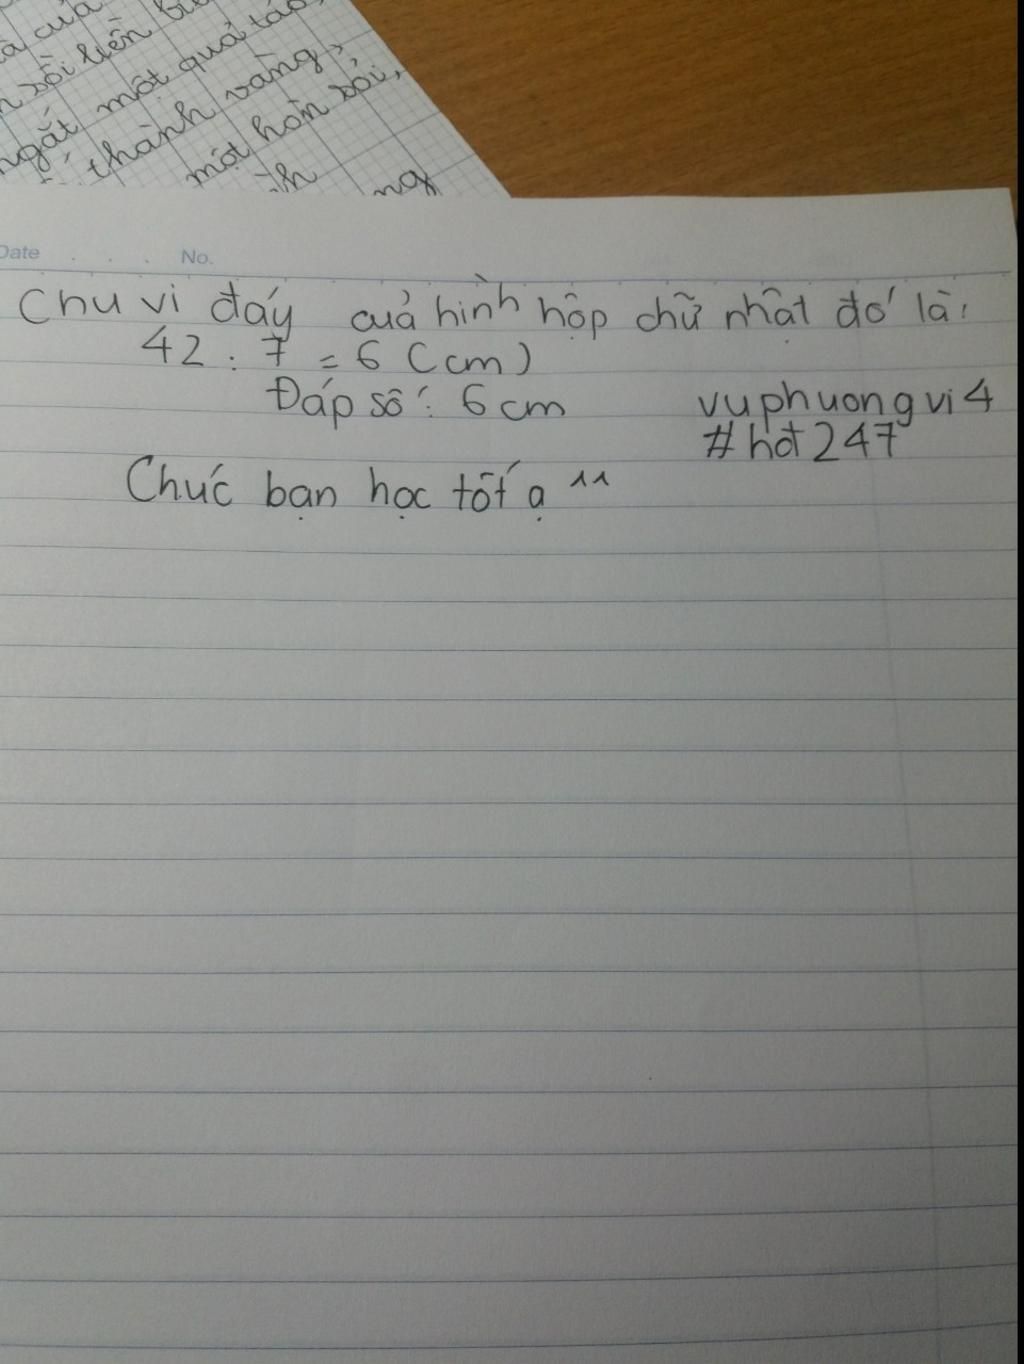 à của
sồi liền
ngắt một quả táo,
thành vàng,
một hòn sỏi,
ng
Date . . . No.
Chu vi đáy cuả hình hộp chữ nhật đó là:
42 : 7 = 6 (cm)
Đáp số: 6 cm
vuphuongvi4
#hot247
Chúc bạn học tốt ạ ^^